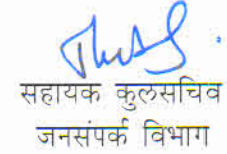 सहायक कुलसचिव
जनसंपर्क विभाग